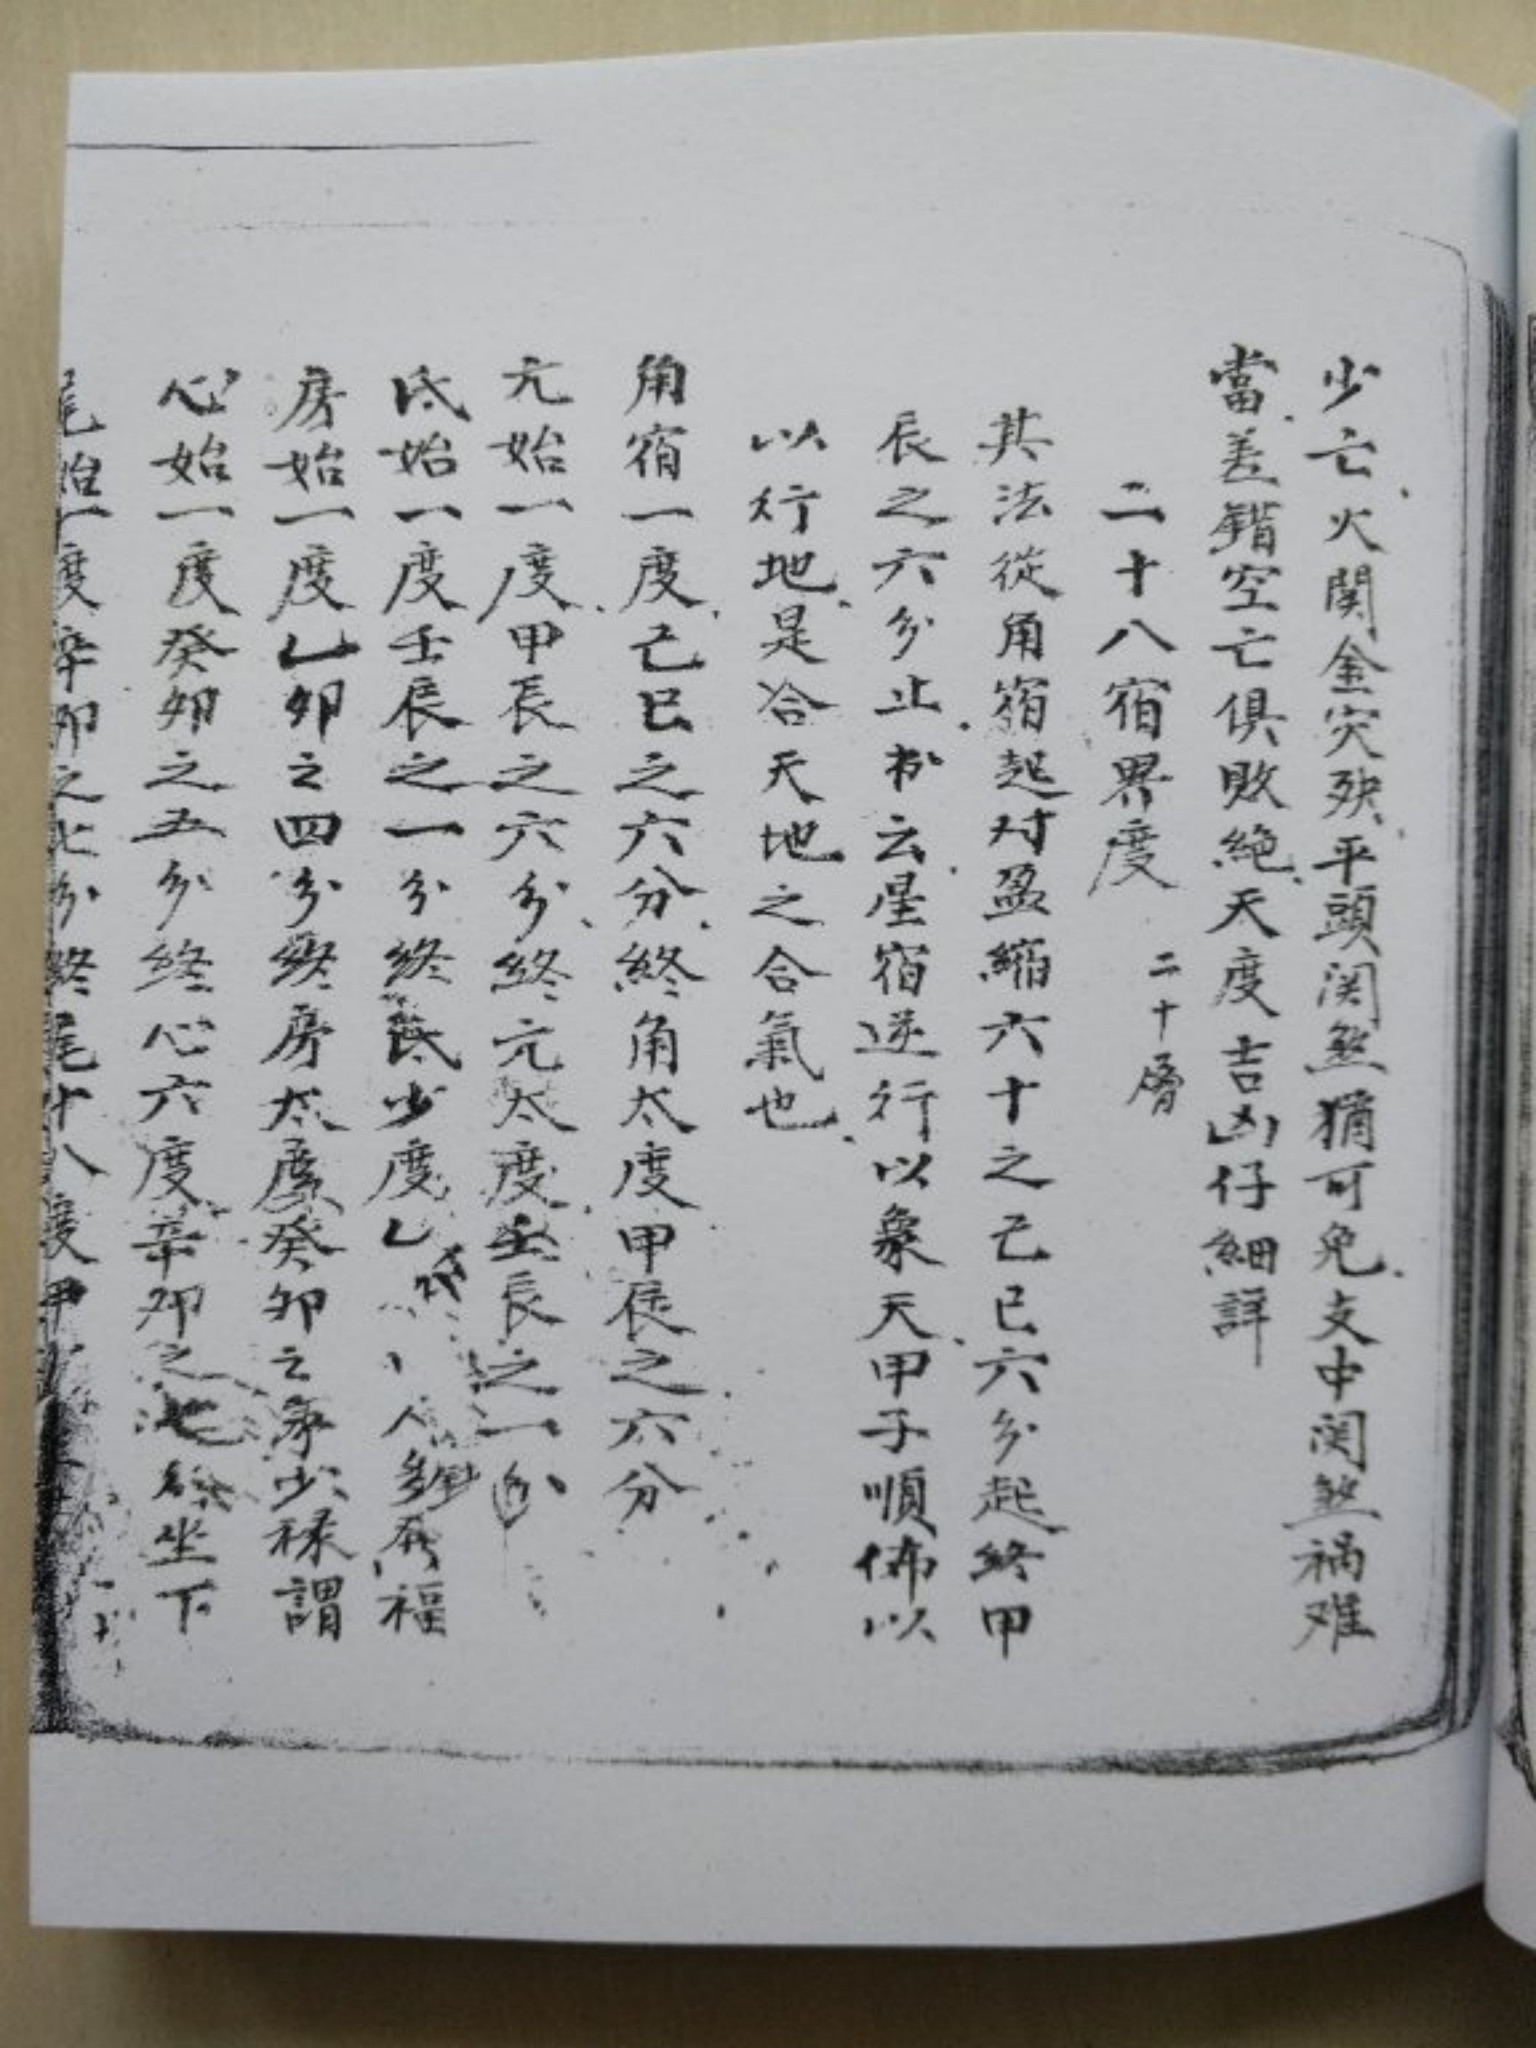 少亡火関金灾殃平頭関煞猶可免支中関煞祸难
當差錯空亡俱敗絶天度吉凶仔細詳
二十八宿界度 二十層
其法從角宿起对盈縮六十之己巳六分起終甲
辰之六分止 云星宿逆行以象天甲子順佈以
以行地是合天地之合氣也
角宿一度己巳之六分終角太度甲辰之六分
亢始一度甲辰之六分終亢太度壬辰之一分
氐始一度壬辰之一分終氐少度乙卯 福
房始一度乙卯之四分終房太度癸卯之 少禄謂
心始一度癸卯之五分終心六度辛卯之七 坐下
尾始一度辛卯之七分終尾十八度甲